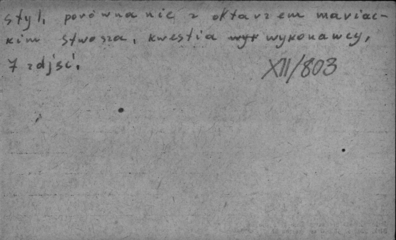 styl, porównanie z ołtarzem mariac-
kim Stwosza, kwestia wyk wykonawcy,
7 zdjęć.
XII/803